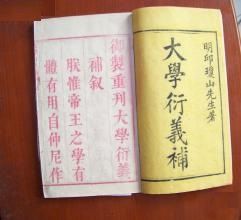 明邱瓊山先生著
大學衍義補
御製重刊大學衍義
補叙
朕惟帝王之學有
體有用自仲尼作